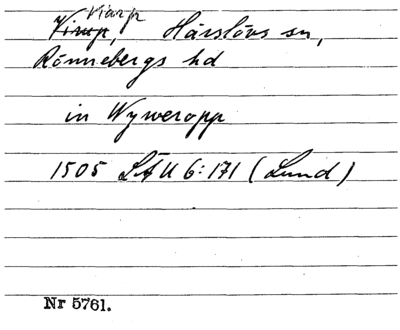 Viarp
Virup, Härslövs sn,
Rönnebergs hd
in Wyweropp
1505 LÄU 6:171 (Lund)
Nr 5761.